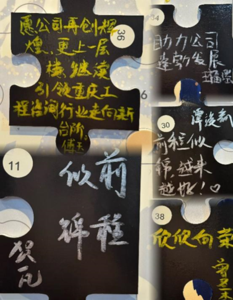 36
愿公司再创辉
煌、更上一层
楼,继续
引领重庆工
程咨询行业走向新
台阶
助力公司
蓬勃发展
30
谭
前程似
锦,越来
越旺!
11
似前
锦程
38
欣欣向荣